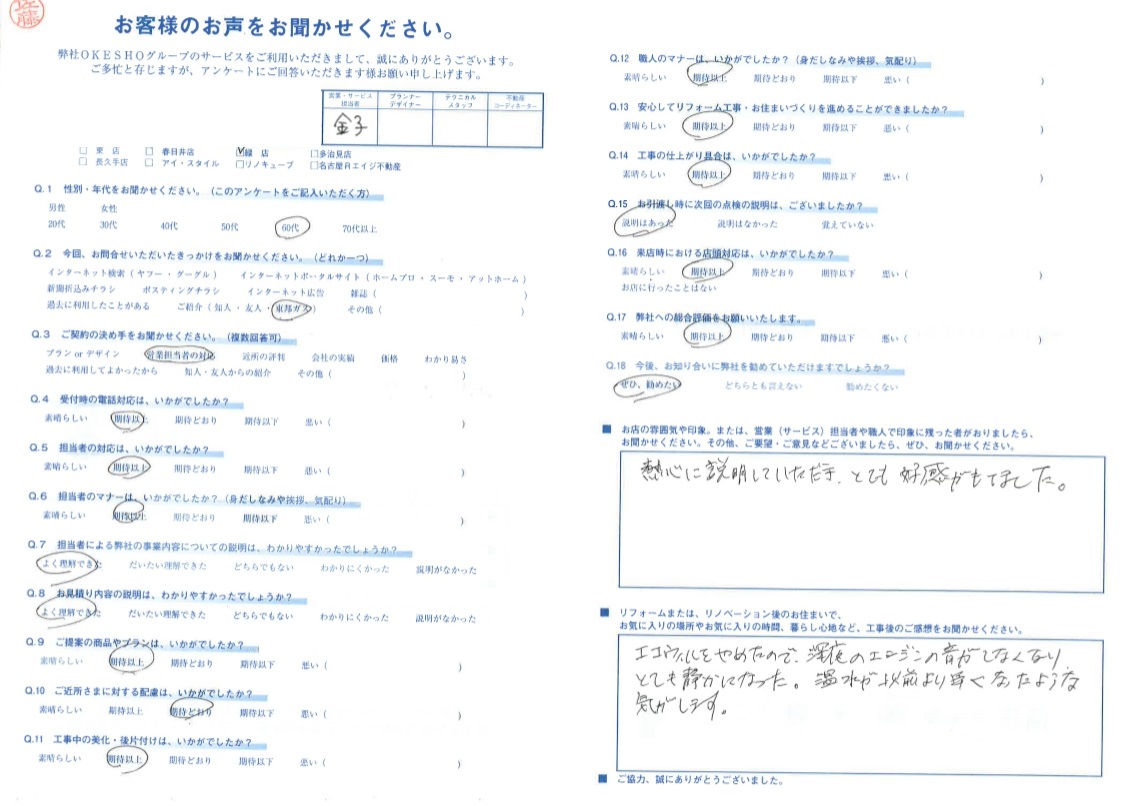 佐藤
お客様のお声をお聞かせください。
弊社OKESHOグループのサービスをご利用いただきまして、誠にありがとうございます。
ご多忙と存じますが、アンケートにご回答いただきます様お願い申し上げます。
営業・サービス担当者 プランナーデザイナー テクニカルスタッフ 不動産コーディネーター
金子
□ 東 店 □ 春日井店 ☑緑 店 □多治見店
□ 長久手店 □ アイ・スタイル □リノキューブ □名古屋Rエイジ不動産
Q.1 性別・年代をお聞かせください。（このアンケートをご記入いただく方）
男性 女性
20代 30代 40代 50代 60代 70代以上
Q.2 今回、お問合せいただいたきっかけをお聞かせください。（どれか一つ）
インターネット検索（ヤフー・グーグル） インターネットポータルサイト（ホームプロ・スーモ・アットホーム）
新聞折込みチラシ ポスティングチラシ インターネット広告 雑誌（ ）
過去に利用したことがある ご紹介（知人・友人・東邦ガス） その他（ ）
Q.3 ご契約の決め手をお聞かせください。（複数回答可）
プラン or デザイン 営業担当者の対応 近所の評判 会社の実績 価格 わかり易さ
過去に利用してよかったから 知人・友人からの紹介 その他（ ）
Q.4 受付時の電話対応は、いかがでしたか？
素晴らしい 期待以上 期待どおり 期待以下 悪い（ ）
Q.5 担当者の対応は、いかがでしたか？
素晴らしい 期待以上 期待どおり 期待以下 悪い（ ）
Q.6 担当者のマナーは、いかがでしたか？（身だしなみや挨拶、気配り）
素晴らしい 期待以上 期待どおり 期待以下 悪い（ ）
Q.7 担当者による弊社の事業内容についての説明は、わかりやすかったでしょうか？
よく理解できた だいたい理解できた どちらでもない わかりにくかった 説明がなかった
Q.8 お見積り内容の説明は、わかりやすかったでしょうか？
よく理解できた だいたい理解できた どちらでもない わかりにくかった 説明がなかった
Q.9 ご提案の商品やプランは、いかがでしたか？
素晴らしい 期待以上 期待どおり 期待以下 悪い（ ）
Q.10 ご近所さまに対する配慮は、いかがでしたか？
素晴らしい 期待以上 期待どおり 期待以下 悪い（ ）
Q.11 工事中の美化・後片付けは、いかがでしたか？
素晴らしい 期待以上 期待どおり 期待以下 悪い（ ）
Q.12 職人のマナーは、いかがでしたか？（身だしなみや挨拶、気配り）
素晴らしい 期待以上 期待どおり 期待以下 悪い（ ）
Q.13 安心してリフォーム工事・お住まいづくりを進めることができましたか？
素晴らしい 期待以上 期待どおり 期待以下 悪い（ ）
Q.14 工事の仕上がり具合は、いかがでしたか？
素晴らしい 期待以上 期待どおり 期待以下 悪い（ ）
Q.15 お引渡し時に次回の点検の説明は、ございましたか？
説明はあった 説明はなかった 覚えていない
Q.16 来店時における店頭対応は、いかがでしたか？
素晴らしい 期待以上 期待どおり 期待以下 悪い（ ）
お店に行ったことはない
Q.17 弊社への総合評価をお願いいたします。
素晴らしい 期待以上 期待どおり 期待以下 悪い（ ）
Q.18 今後、お知り合いに弊社を勧めていただけますでしょうか？
ぜひ、勧めたい どちらとも言えない 勧めたくない
■ お店の雰囲気や印象。または、営業（サービス）担当者や職人で印象に残った者がおりましたら、
お聞かせください。その他、ご要望・ご意見などございましたら、ぜひ、お聞かせください。
熱心に説明していただき、とても好感がもてました。
■ リフォームまたは、リノベーション後のお住まいで、
お気に入りの場所やお気に入りの時間、暮らし心地など、工事後のご感想をお聞かせください。
エコウィルをやめたので、深夜のエンジンの音がしなくなり、
とても静かになった。温水が以前より早くなったような
気がします。
■ ご協力、誠にありがとうございました。